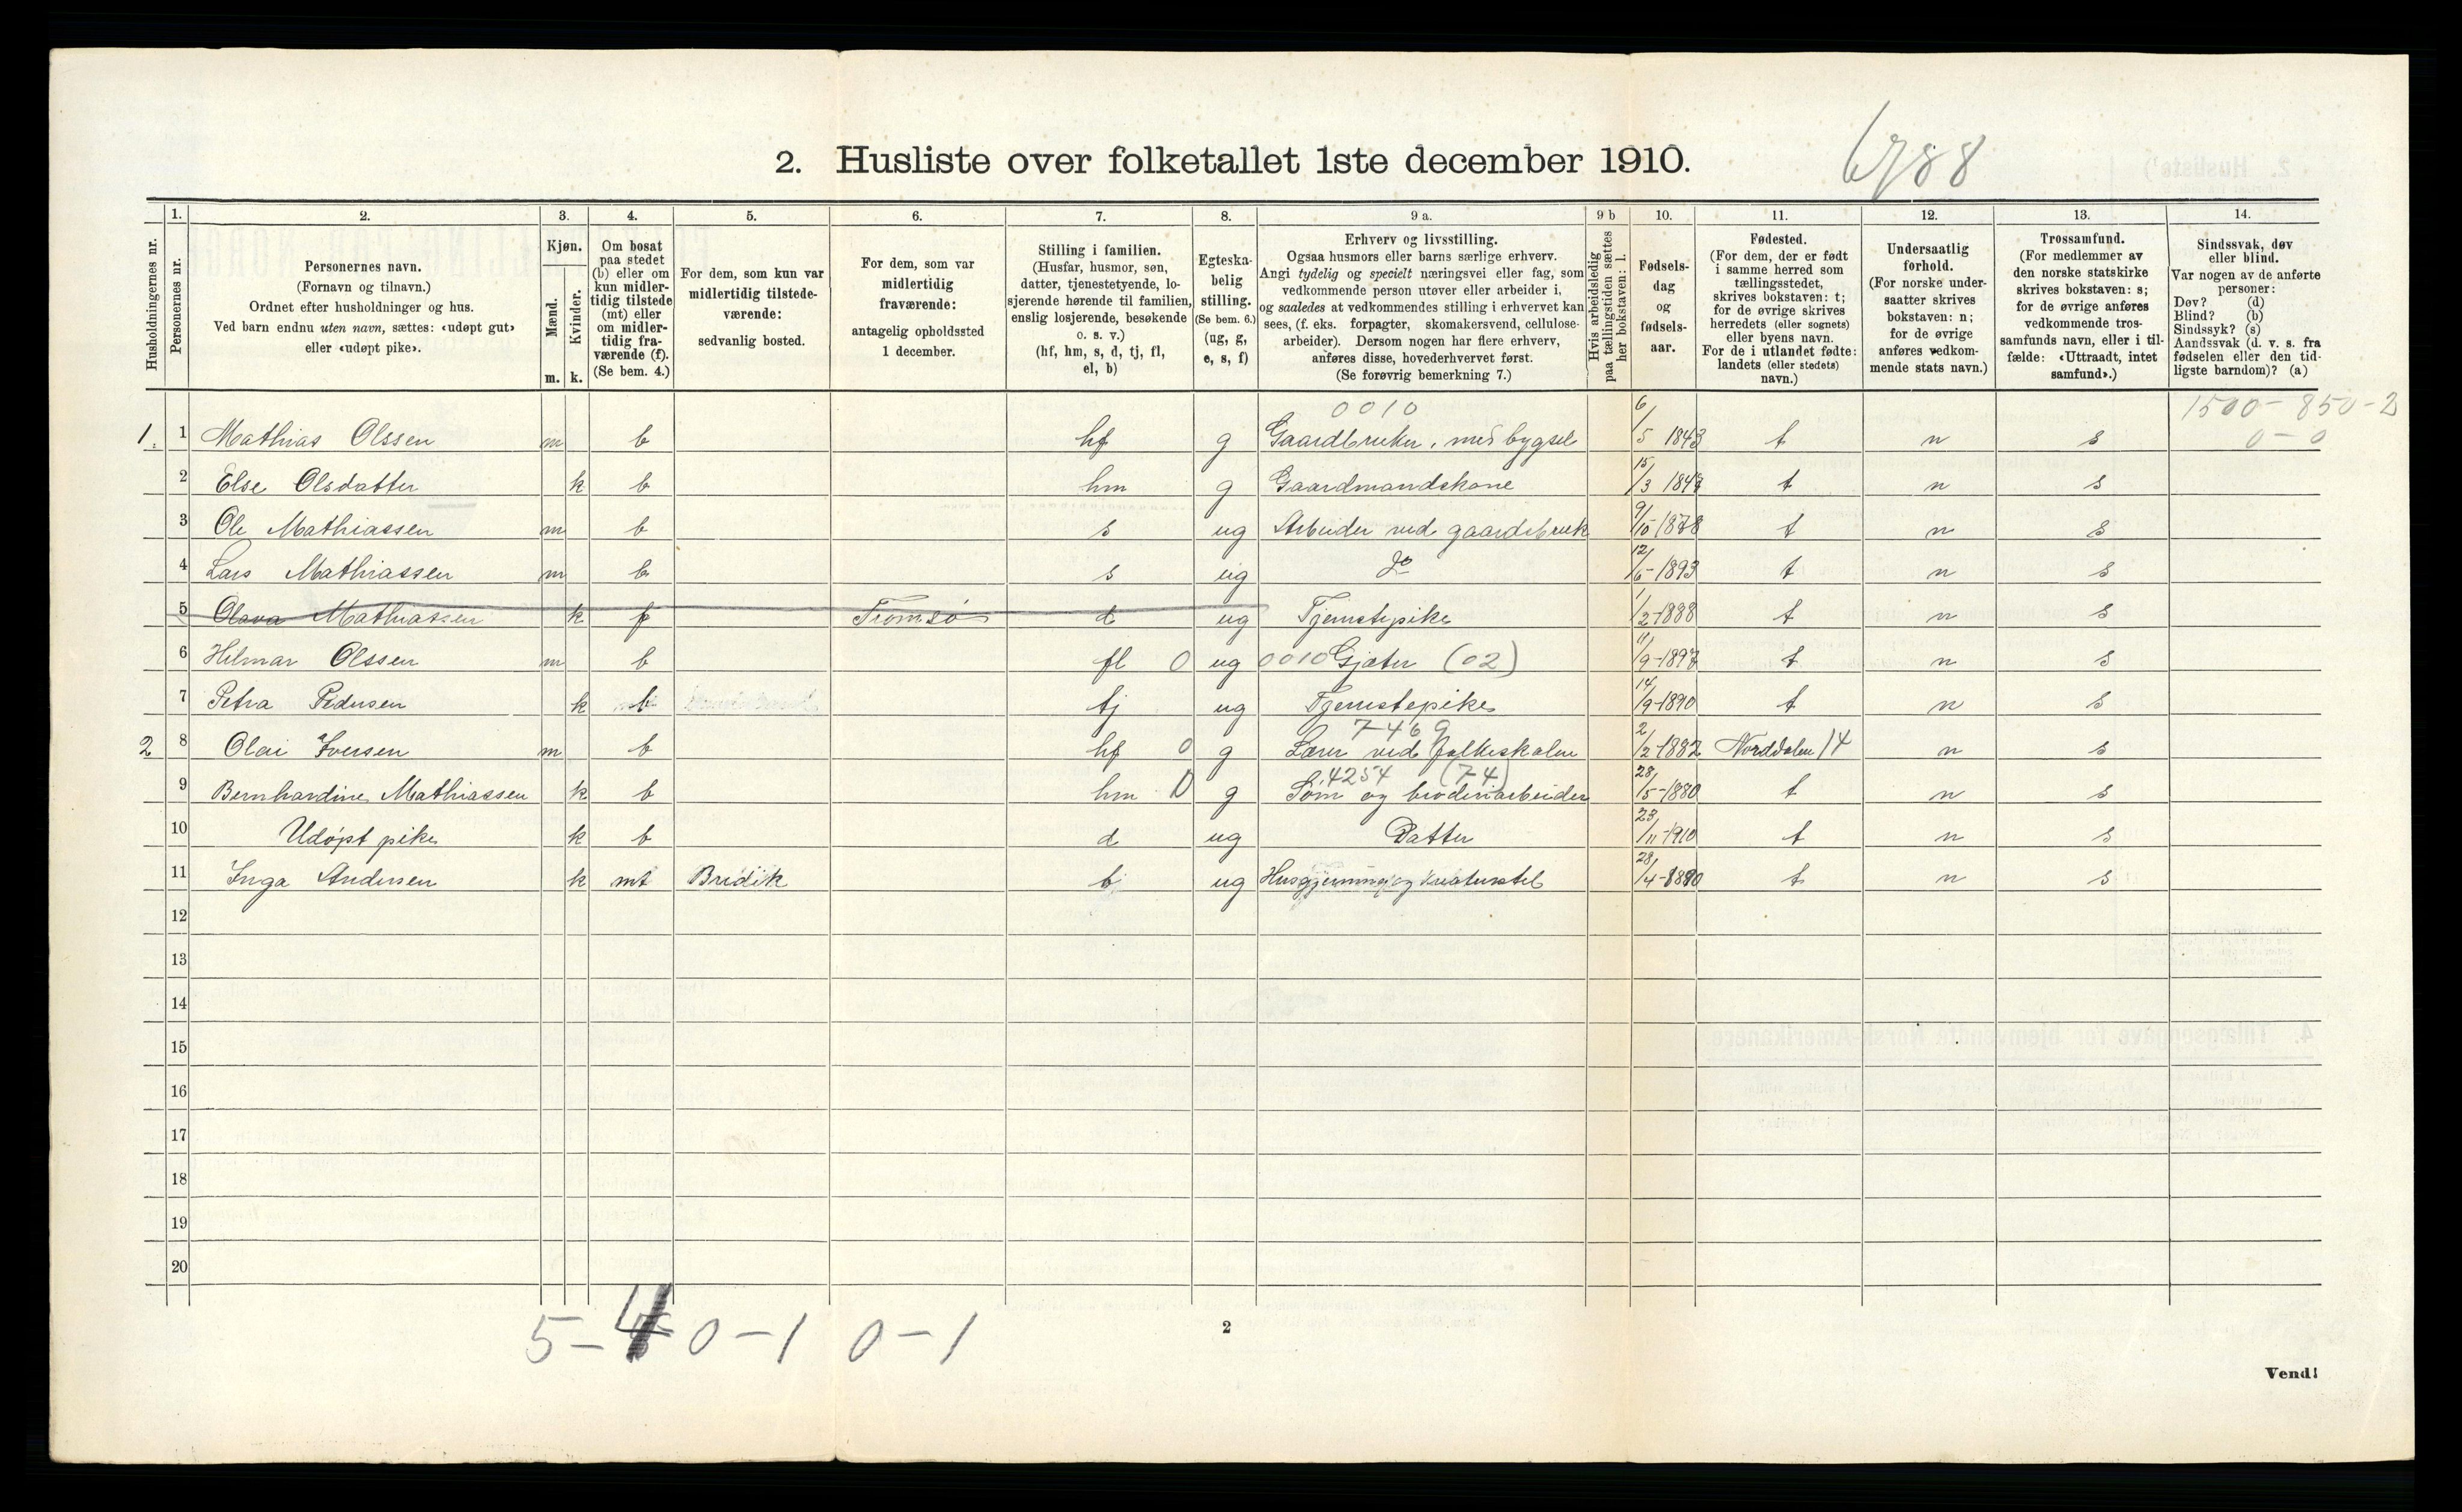 2. Husliste over folketallet 1ste december 1910.
6788
Husholdningernes nr.
1.
Personernes nr.
2.
Personernes navn.
(Fornavn og tilnavn.)
Ordnet efter husholdninger og hus.
Ved barn endnu uten navn, sættes: «udøpt gut»
eller «udøpt pike».
3.
Kjøn.
Mænd.
Kvinder.
m. k.
4.
Om bosat
paa stedet
(b) eller om
kun midler-
tidig tilstede
(mt) eller
om midler-
tidig fra-
værende (f).
(Se bem. 4.)
5.
For dem, som kun var
midlertidig tilstede-
værende:
sedvanlig bosted.
6.
For dem, som var
midlertidig
fraværende:
antagelig opholdssted
1 december.
7.
Stilling i familien.
(Husfar, husmor, søn,
datter, tjenestetyende, lo-
sjerende hørende til familien,
enslig losjerende, besøkende
o. s. v.)
(hf, hm, s, d, tj, fl,
el, b)
8.
Egteska-
belig
stilling.
(Se bem. 6.)
(ug, g,
e, s, f)
9 a.
Erhverv og livsstilling.
Ogsaa husmors eller barns særlige erhverv.
Angi tydelig og specielt næringsvei eller fag, som
vedkommende person utøver eller arbeider i,
og saaledes at vedkommendes stilling i erhvervet kan
sees, (f. eks. forpagter, skomakersvend, cellulose-
arbeider). Dersom nogen har flere erhverv,
anføres disse, hovederhvervet først.
(Se forøvrig bemerkning 7.)
9 b
Hvis arbeidsledig
paa tællingstiden sættes
her bokstaven: l.
10.
Fødsels-
dag
og
fødsels-
aar.
11.
Fødested.
(For dem, der er født
i samme herred som
tællingsstedet,
skrives bokstaven: t;
for de øvrige skrives
herredets (eller sognets)
eller byens navn.
For de i utlandet fødte:
landets (eller stedets)
navn.)
12.
Undersaatlig
forhold.
(For norske under-
saatter skrives
bokstaven: n;
for de øvrige
anføres vedkom-
mende stats navn.)
13.
Trossamfund.
(For medlemmer av
den norske statskirke
skrives bokstaven: s;
for de øvrige anføres
vedkommende tros-
samfunds navn, eller i til-
fælde: «Uttraadt, intet
samfund».)
14.
Sindssvak, døv
eller blind.
Var nogen av de anførte
personer:
Døv? (d)
Blind? (b)
Sindssyk? (s)
Aandssvak (d. v. s. fra
fødselen eller den tid-
ligste barndom)? (a)
0010
1500-850-2
1. 1 Mathias Olssen m b hf g Gaardbruker, med bygsel 6/5 1843 t n s 0-0
2 Else Olsdatter k b hm g Gaardmandskone 15/3 t n s
3 Ole Mathiassen m b s ug Arbeider ved gaardsbruk 9/10 1878 t n s
4 Lars Mathiassen m b s ug Do 12/6-1893 t n s
5 Olava Mathiassen k f Tromsø d ug Tjenestepike 1/2-1888 t n s
6 Hilmar Olssen m b fl 0 ug 0010 Gjæter (02) 11/9-1897 t n s
7 Petra Pedersen k b tj ug Tjenestepike 14/9-1890 t n s
7469
2 8 Olai Iversen m b hf 0 g Lærer ved folkeskolen 2/2-1882 Norddalen 14 n s
4254 (74)
9 Bernhardine Mathiassen k b hm 0 g Søm og broderiarbeider 28/5-1880 t n s
10 Udøpt pike k b d ug Datter 23/11-1910 t n s
11 Inga Andersen k mt Bredik b ug Husgjerning og kreaturstel 28/4-1890 t n s
12
13
14
15
16
17
18
19
20
5-4 0-1 0-1
2
Vend!